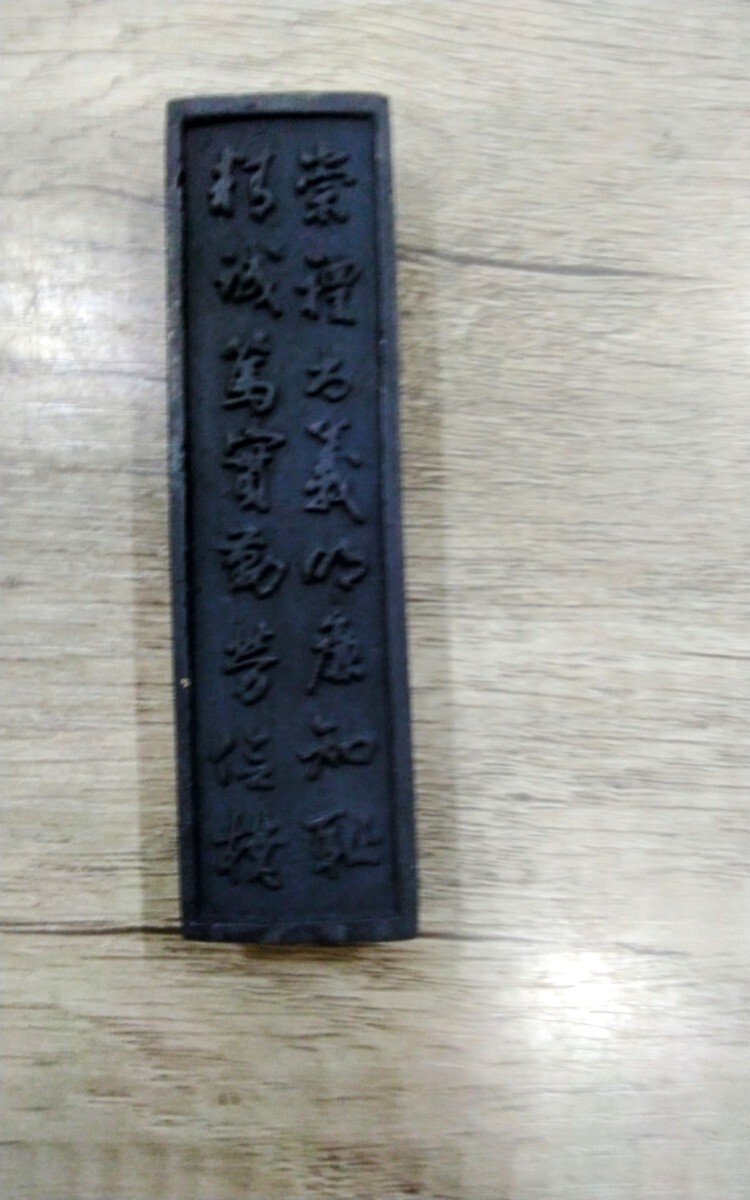 崇禮尚義明廉知恥
精誠篤實勤勞信機